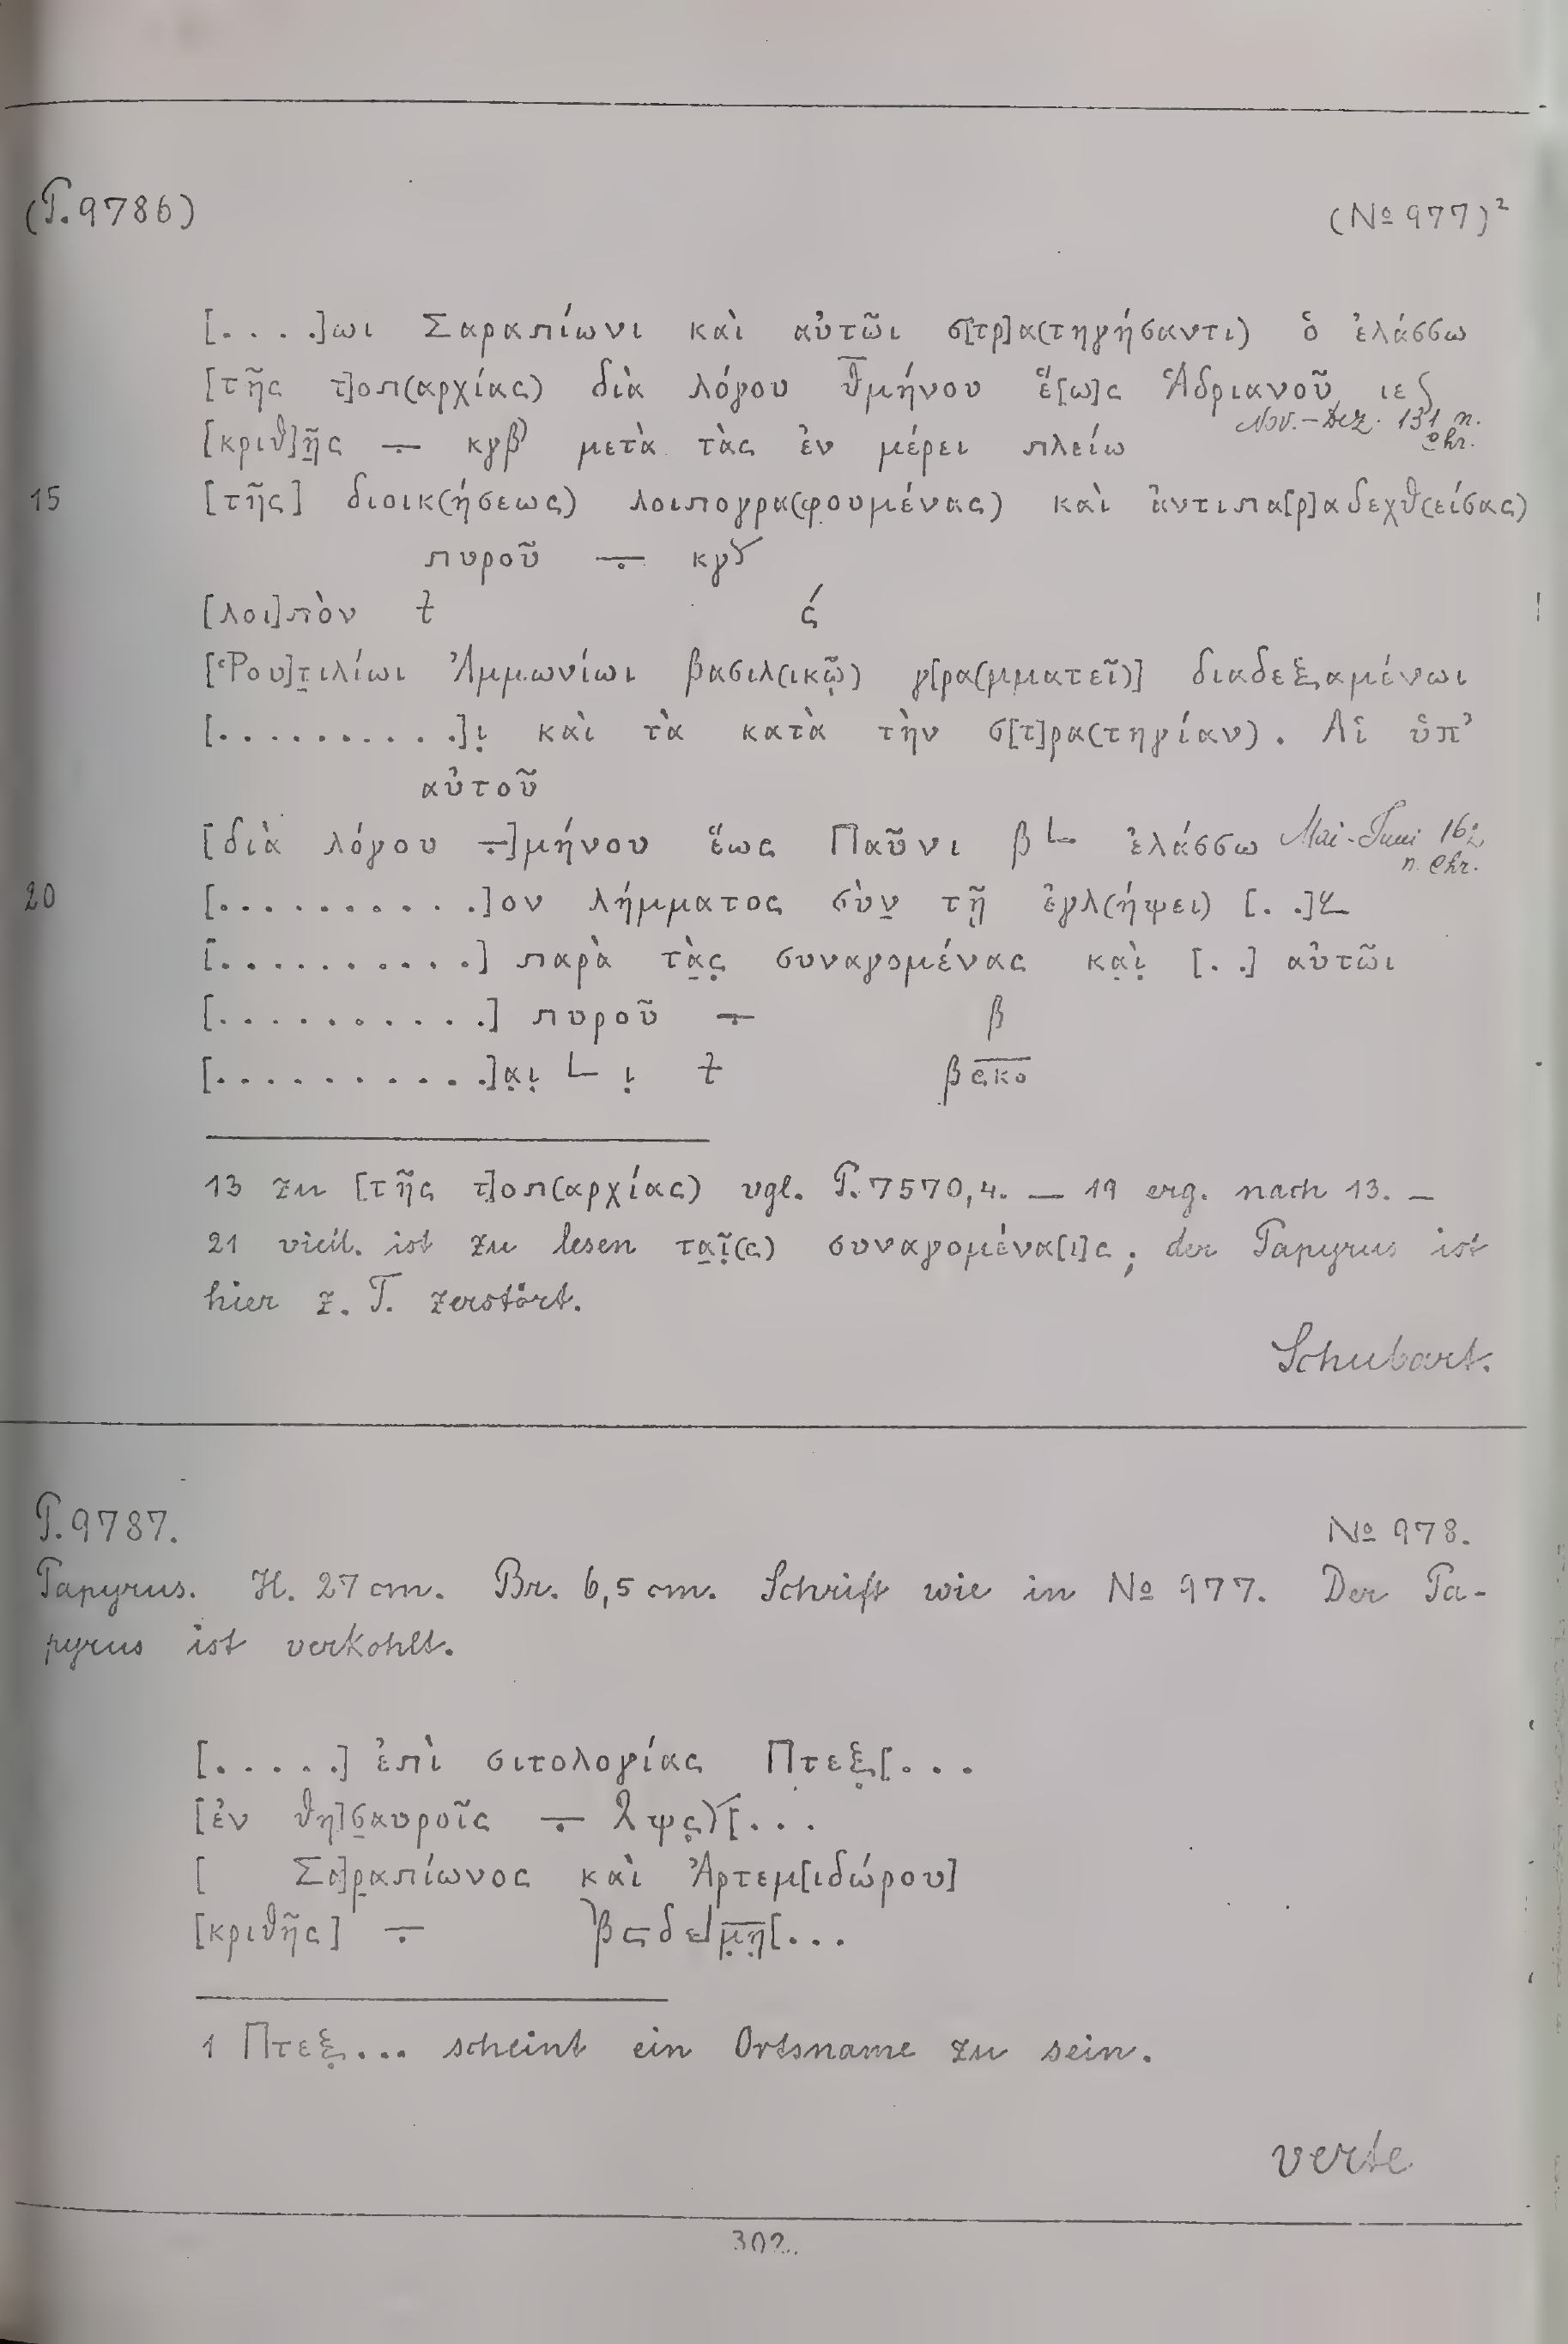 (P. 9786) (№ 977)²
[. . . .]ωι Σαραπίωνι καὶ αὐτῶι σ[τρ]α(τηγήσαντι) ὁ ἐλάσσω
[τῆς τ]οπ(αρχίας) διὰ λόγου θ̅μήνου ἕ[ω]ς Ἁδριανοῦ ιεʃ
Nov.-Dez. 131 n. Chr.
[κριθ]ῆ̣ς ÷ κγβ´ μετὰ τὰς ἐν μέρει πλείω
15 [τῆς] διοικ(ήσεως) λοιπογρα(φουμένας) καὶ ἀντιπα[ρ]αδεχθ(είσας)
πυροῦ ÷ κγ
[λοι]πὸν ϯ ς´
[Ῥου]τ̣ιλίωι Ἀμμωνίωι βασιλ(ικῷ) γ[ρα(μματεῖ)] διαδεξαμένωι
[. . . . . . . . . .]ι̣ καὶ τὰ κατὰ τὴν σ[τ]ρα(τηγίαν). Αἱ ὑπ᾽
αὐτοῦ
[διὰ λόγου ÷]μήνου ἕως Παῦνι β∟ ἐλάσσω Mai-Juni n. Chr.
20 [. . . . . . . . . . .]ον λήμματος σὺν̣ τῇ ἐγλ(ήψει) [. .]
[. . . . . . . . . . .] παρὰ τὰ̣ς̣ συναγομένας κα̣ὶ̣ [. .] αὐτῶι
[. . . . . . . . . . .] πυροῦ ÷ β
[. . . . . . . . . . .]α̣ι̣ ∟ ι̣ ϯ β ς̅κ̅ο̅
13 zu [τῆς τ]οπ(αρχίας) vgl. P. 7570,4. — 19 erg. nach 13. —
21 viell. ist zu lesen τα̣ῖ̣(ς) συναγομένα[ι]ς; der Papyrus ist
hier z. T. zerstört.
Schubart.
P. 9787. № 978.
Papyrus. H. 27 cm. Br. 6,5 cm. Schrift wie in № 977. Der Pa-
pyrus ist verkohlt.
[. . . . .] ἐπὶ σιτολογίας Πτεξ̣[. . .
[ἐν θη]σ̣αυροῖς ÷ λψς̣[. . .
[ Σα]ρ̣απίωνος καὶ Ἀρτεμ[ιδώρου]
[κριθῆς] ÷ βϛδ μ̣̅η̣̅[. . .
1 Πτεξ̣... scheint ein Ortsname zu sein.
verte
302.